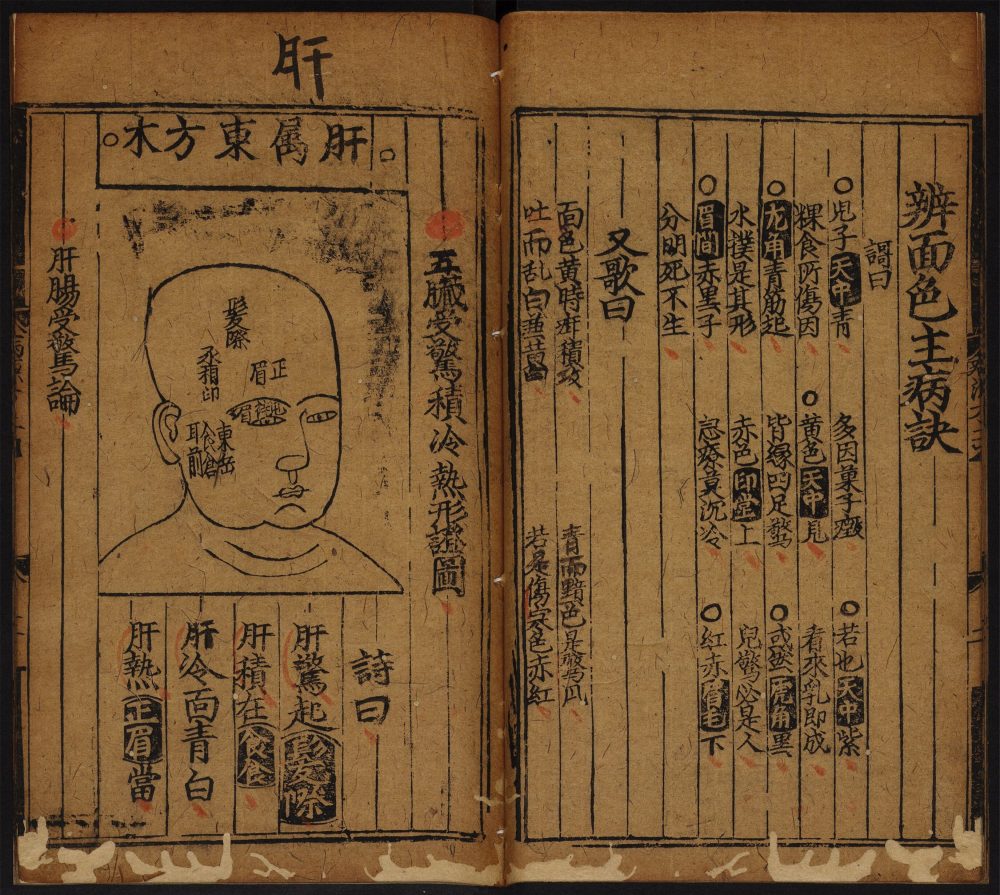 辨面色主病訣
謌曰
○児子天中青 多因菓子癥 ○若也天中紫
粿食所傷因 ○黄色天中見 看來乳即成
○龙角青筋起 皆緣四足驚 ○或然虎角黒
水撲是其形 赤色印堂上 兒驚必是人
○眉間赤黒子 急療莫沉冷 ○紅赤眉毛下
分明死不生
又歌曰
面色黄時疳積攻 青而黯色是驚風
吐而乱白 若是傷寒色赤紅
肝
○肝属東方木○
五臟受驚積冷熱形證圖
髮際
正眉
印
眉
東岳
食倉
耳前
詩曰
肝驚起髮際
肝積在食倉
肝冷面青白
肝熱正眉當
肝腸受驚論